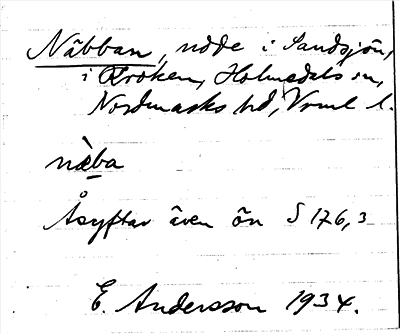 Näbban, udde i Sandsjön,
i Kroken, Holmedals sn,
Nordmarks hd, Vrml l.
næ̀ba
Åsyftar även ön S 176,3
E. Andersson 1934.